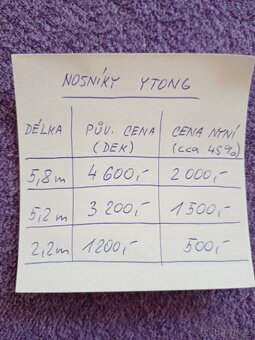 NOSNÍKY YTONG
DÉLKA PŮV. CENA (DEK) CENA NYNÍ (cca 45%)
5,8m 4 600,- 2 000,-
5,2m 3 200,- 1 500,-
2,2m 1200,- 500,-